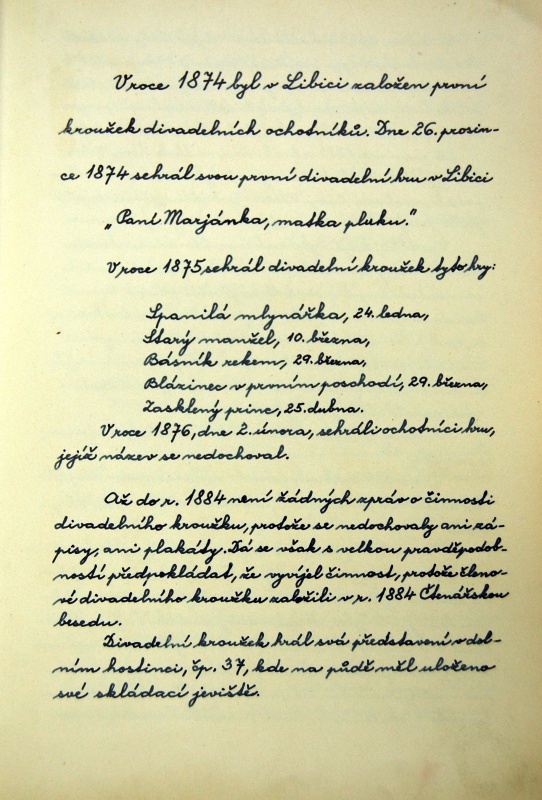 V roce 1874 byl v Libici založen první
kroužek divadelních ochotníků. Dne 26. prosin-
ce 1874 sehrál svou první divadelní hru v Libici
„Paní Marjánka, matka pluku."
V roce 1875 sehrál divadelní kroužek tyto hry:
Spanilá mlynářka, 24. ledna,
Starý manžel, 10. března,
Básník rekem, 29. března,
Blázinec v prvním poschodí, 29. března,
Zasklený princ, 25. dubna.
V roce 1876, dne 2. února, sehráli ochotníci hru,
jejíž název se nedochoval.
Až do r. 1884 není žádných zpráv o činnosti
divadelního kroužku, protože se nedochovaly ani zá-
pisy, ani plakáty. Dá se však s velkou pravděpodob-
ností předpokládat, že vyvíjel činnost, protože členo-
vé divadelního kroužku založili v r. 1884 Čtenářskou
besedu.
Divadelní kroužek hrál svá představení v dol-
ním hostinci, čp. 37, kde na půdě měl uloženo
své skládací jeviště.